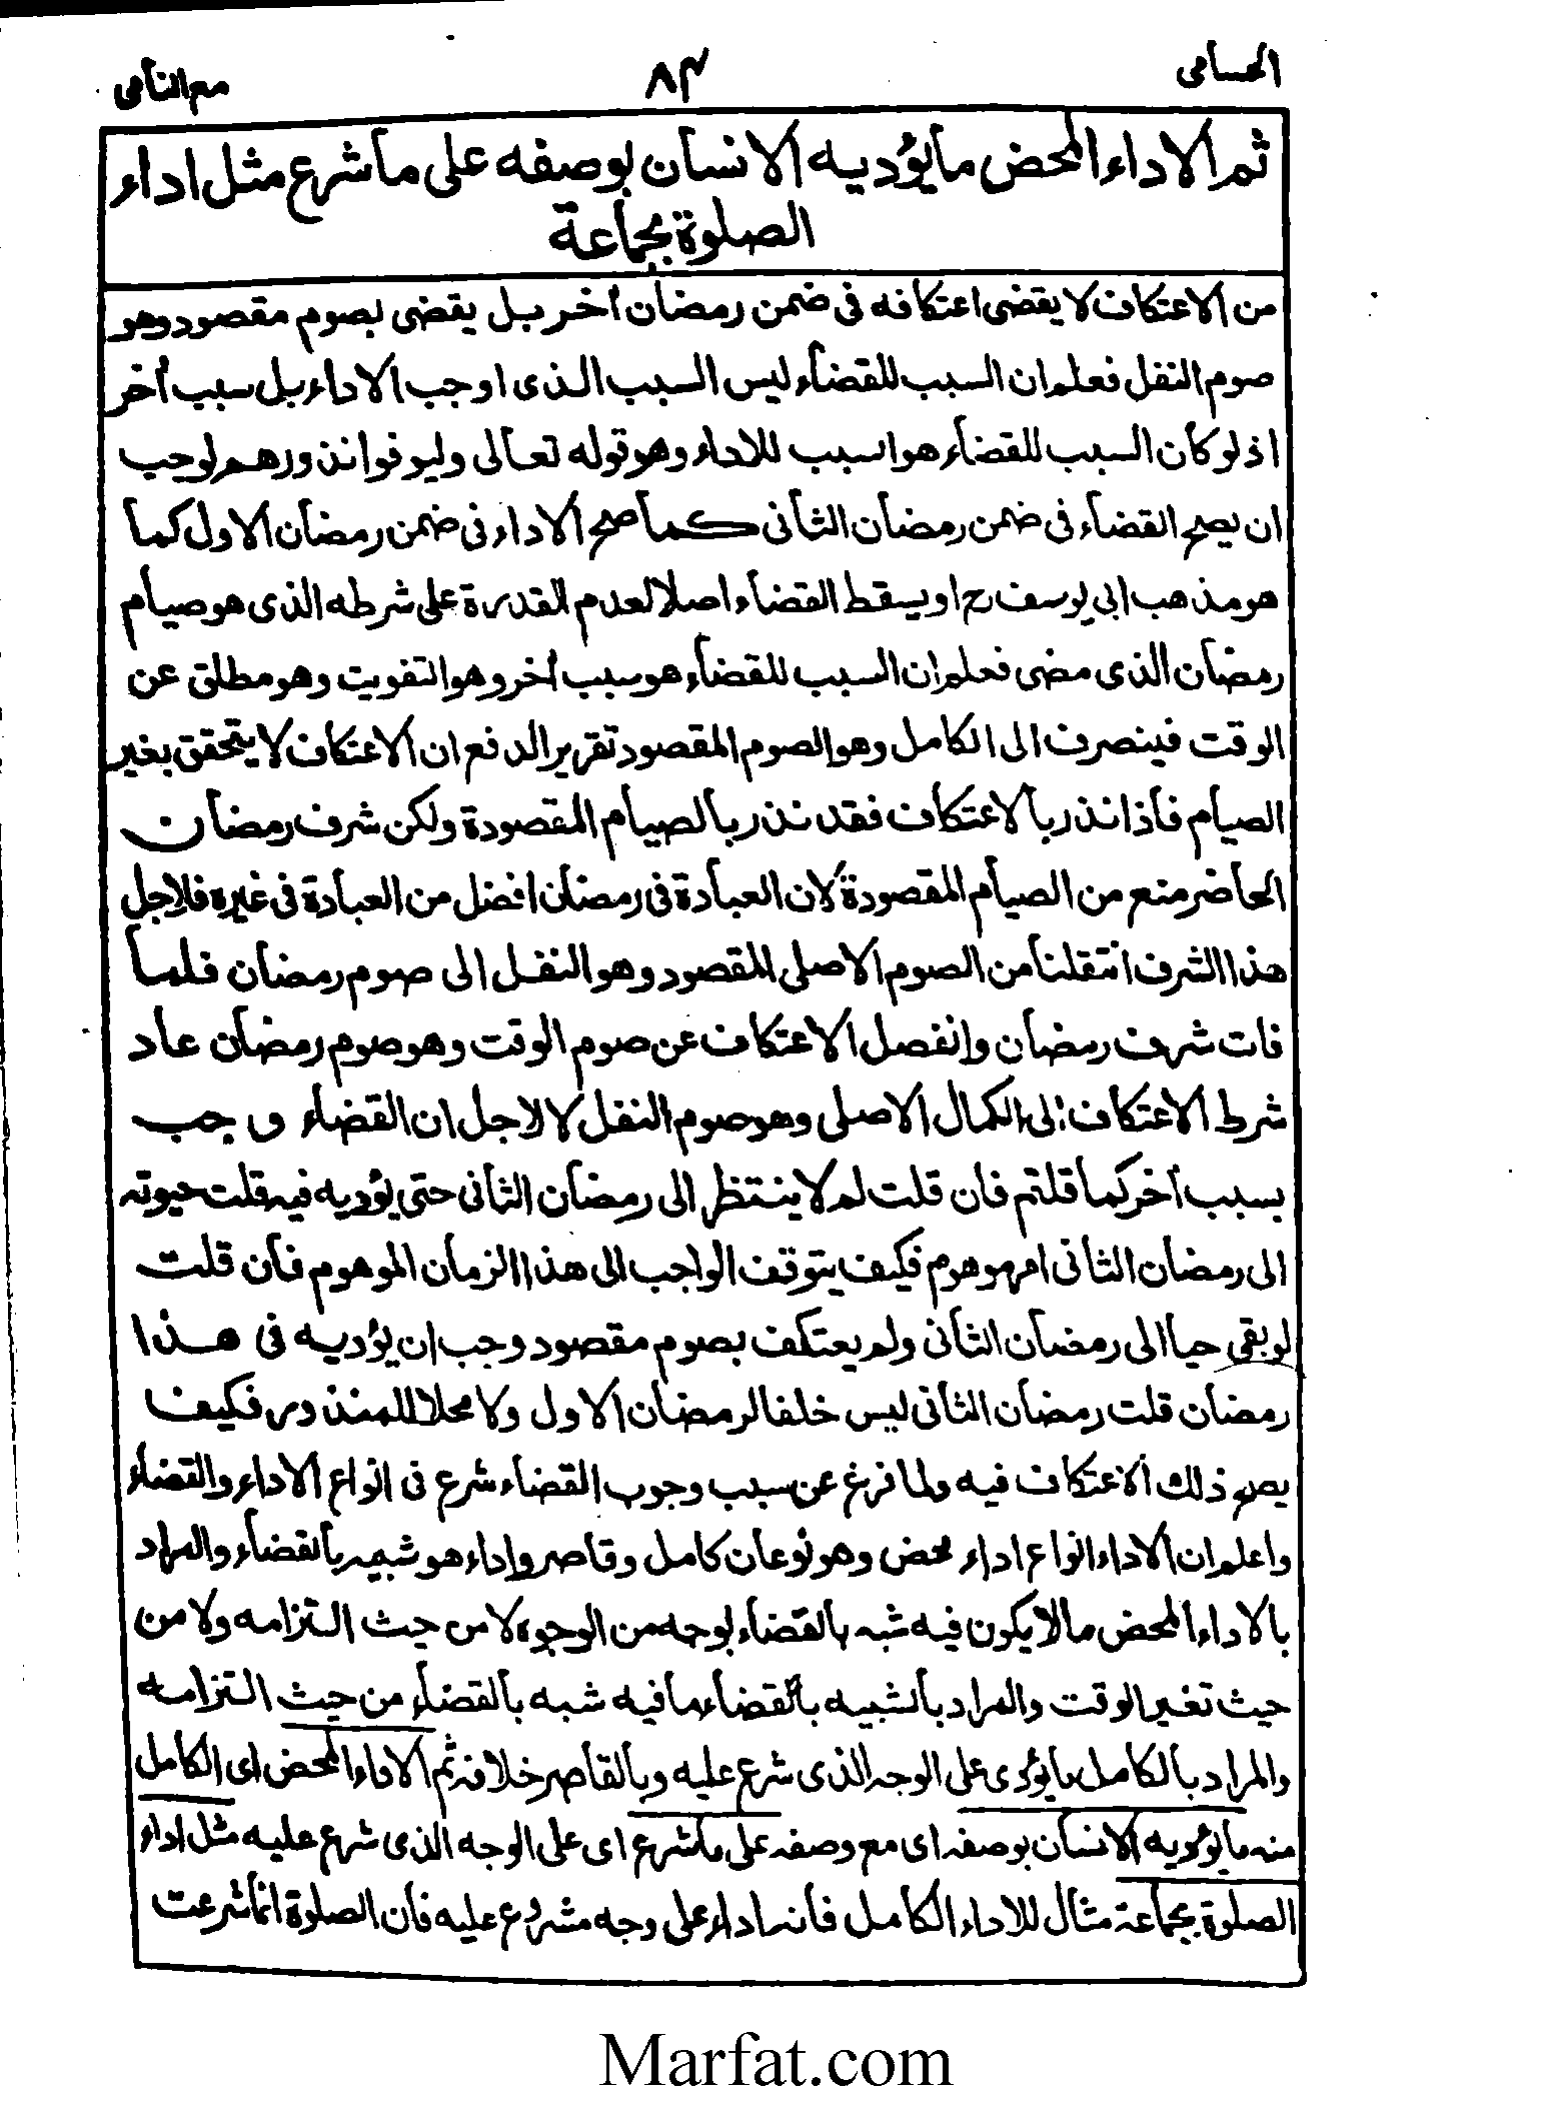 الحسامی
۸۴
مع النامی
ثم الاداء المحض ما یؤدیه الانسان بوصفه علی ما شرع مثل اداء
الصلوة بجماعة
من الاعتکاف لا یقضی اعتکافه فی ضمن رمضان اٰخر بل یقضی بصوم مقصود وهو
صوم النفل فعلم ان السبب للقضاء لیس السبب الذی اوجب الاداء بل سبب اٰخر
اذ لو کان السبب للقضاء هو اسبب للاداء وهو قوله تعالی ولیوفوا نذورهم لوجب
ان یصح القضاء فی ضمن رمضان الثانی کما صح الاداء فی ضمن رمضان الاول کما
هو مذهب ابی یوسف رح او یسقط القضاء اصلا لعدم القدرة علی شرطه الذی هو صیام
رمضان الذی مضی فعلم ان السبب للقضاء هو سبب اٰخر وهو التفویت وهو مطلق عن
الوقت فینصرف الی الکامل وهو الصوم المقصود تقریر الدفع ان الاعتکاف لا یتحقق بغیر
الصیام فاذا نذر بالاعتکاف فقد نذر بالصیام المقصودة ولکن شرف رمضان
الحاضر منع من الصیام المقصودة لان العبادة فی رمضان افضل من العبادة فی غیره فلاجل
هذا الشرف انتقلنا من الصوم الاصلی المقصود وهو النفل الی صوم رمضان فلما
فات شرف رمضان وانفصل الاعتکاف عن صوم الوقت وهو صوم رمضان عاد
شرط الاعتکاف الی الکمال الاصلی وهو صوم النفل لا لاجل ان القضاء وجب
بسبب اٰخر کما قلتم فان قلت لم لا ینتظر الی رمضان الثانی حتی یؤدیه فیه قلت حیوته
الی رمضان الثانی امر موهوم فکیف یتوقف الواجب الی هذا الزمان الموهوم فان قلت
لو بقی حیا الی رمضان الثانی ولم یعتکف بصوم مقصود وجب ان یؤدیه فی هذا
رمضان قلت رمضان الثانی لیس خلفا لرمضان الاول ولا محلا للمنذور فکیف
یصح ذلك الاعتکاف فیه ولما فرغ عن سبب وجوب القضاء شرع فی انواع الاداء والقضاء
واعلم ان الاداء انواع اداء محض وهو نوعان کامل وقاصر واداء هو شبیه بالقضاء والمراد
بالاداء المحض ما لا یکون فیه شبه بالقضاء بوجه من الوجوه لا من حیث التزامه ولا من
حیث تغیر الوقت والمراد بالشبیه بالقضاء ما فیه شبه بالقضاء من حیث التزامه
والمراد بالکامل ما یؤدی علی الوجه الذی شرع علیه وبالقاصر خلافه ثم الاداء المحض ای الکامل
منه ما یؤدیه الانسان بوصفه ای مع وصفه علی ما شرع ای علی الوجه الذی شرع علیه مثل اداء
الصلوة بجماعة مثال للاداء الکامل فانه اداء علی وجه مشروع علیه فان الصلوة انما شرعت
Marfat.com